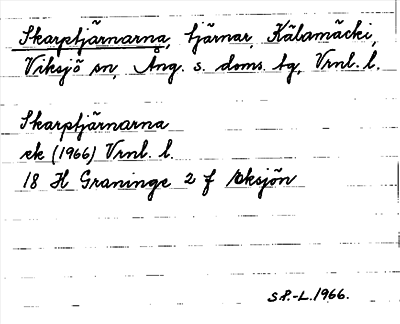 Skarptjärnarna, tjärnar, Kälamäcki,
Viksjö sn, Ång. s. doms. tg, Vrnl. l.
Skarptjärnarna
ek (1966) Vrnl. l.
18 H Graninge 2 f Oksjön
S.P.-L. 1966.